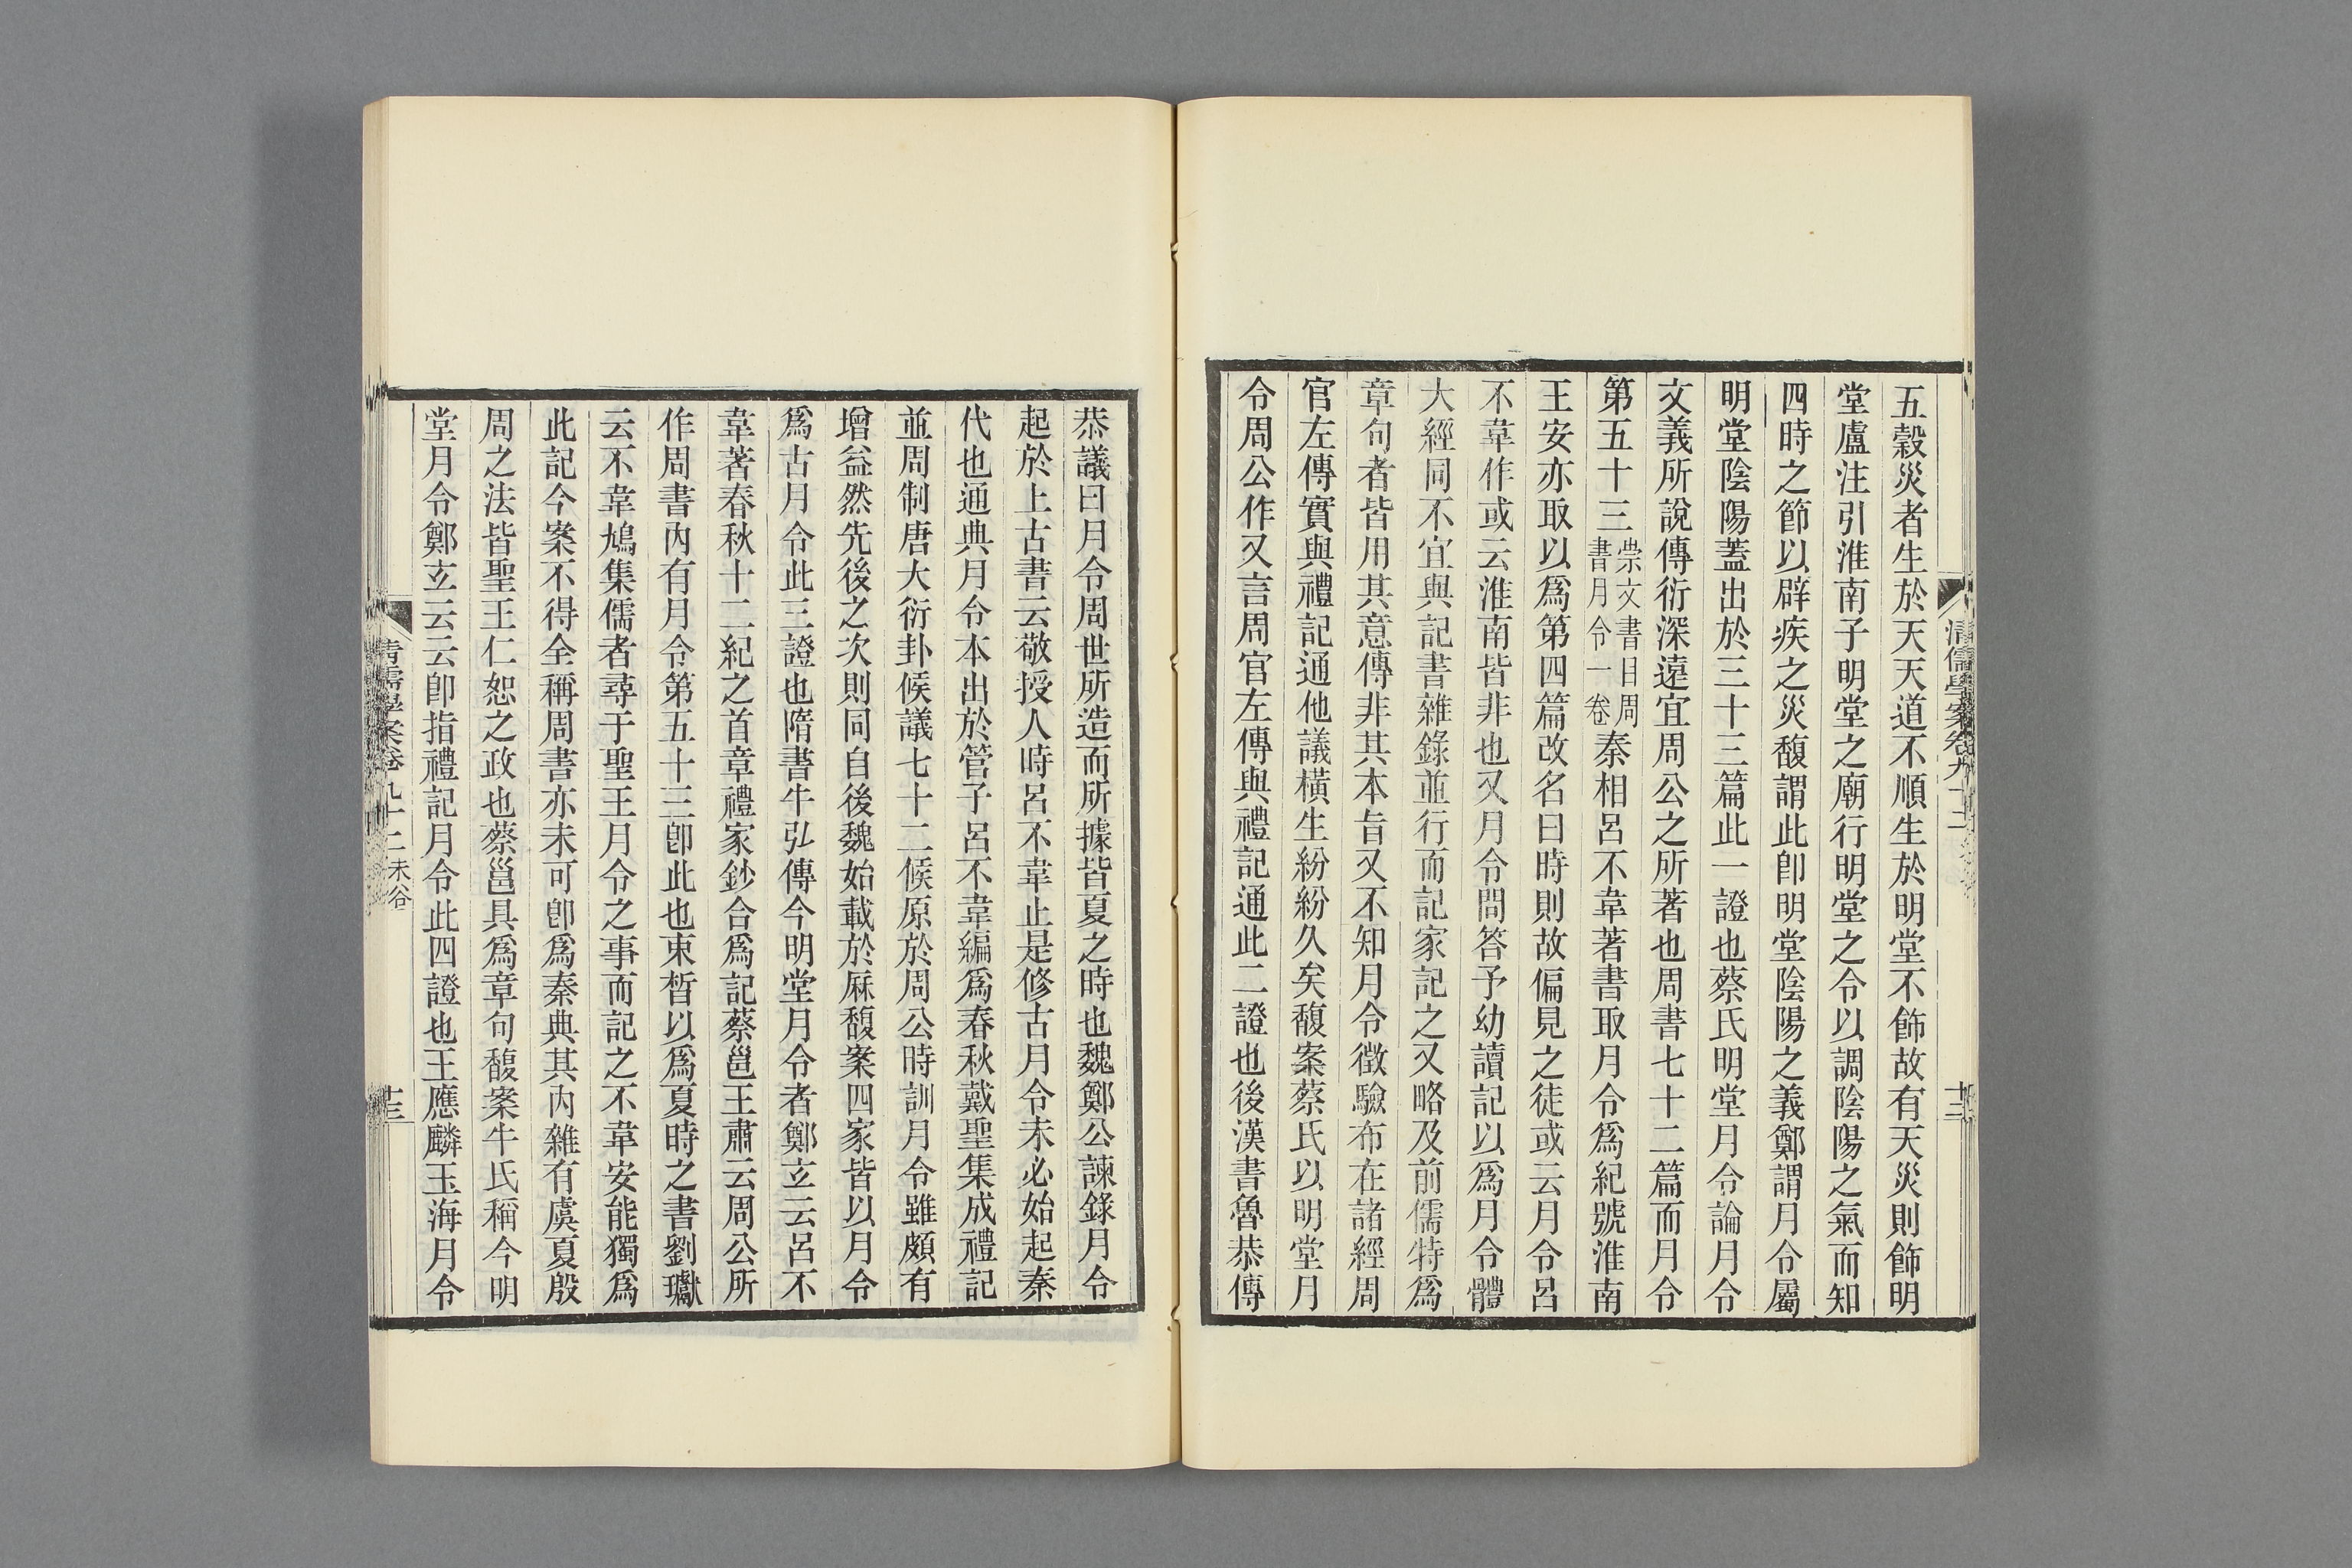 五穀災者生於天天道不順生於明堂不飾故有天災則飾明
堂盧注引淮南子明堂之廟行明堂之令以調陰陽之氣而知
四時之節以辟疾之災馥謂此卽明堂陰陽之義鄭謂月令屬
明堂陰陽蓋出於三十三篇此一證也蔡氏明堂月令論月令
文義所說傳衍深遠宜周公之所著也周書七十二篇而月令
第五十三崇文書目周書月令一卷秦相呂不韋著書取月令爲紀號淮南
王安亦取以爲第四篇改名曰時則故偏見之徒或云月令呂
不韋作或云淮南皆非也又月令問答予幼讀記以爲月令體
大經同不宜與記書雜錄並行而記家記之又略及前儒特爲
章句者皆用其意傳非其本旨又不知月令徵驗布在諸經周
官左傳實與禮記通他議橫生紛紛久矣馥案蔡氏以明堂月
令周公作又言周官左傳與禮記通此二證也後漢書魯恭傳
恭議曰月令周世所造而所據皆夏之時也魏鄭公諫錄月令
起於上古書云敬授人時呂不韋止是修古月令未必始起秦
代也通典月令本出於管子呂不韋編爲春秋戴聖集成禮記
並周制唐大衍卦候議七十二候原於周公時訓月令雖頗有
增益然先後之次則同自後魏始載於厤馥案四家皆以月令
爲古月令此三證也隋書牛弘傳今明堂月令者鄭玄云呂不
韋著春秋十二紀之首章禮家鈔合爲記蔡邕王肅云周公所
作周書內有月令第五十三卽此也束晳以爲夏時之書劉瓛
云不韋鳩集儒者尋于聖王月令之事而記之不韋安能獨爲
此記今案不得全稱周書亦未可卽爲秦典其內雜有虞夏殷
周之法皆聖王仁恕之政也蔡邕具爲章句馥案牛氏稱今明
堂月令鄭玄云云卽指禮記月令此四證也王應麟玉海月令
清儒學案卷九十二 未谷
十三